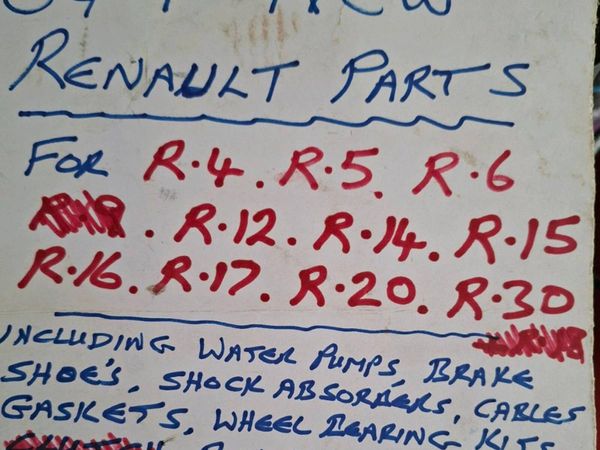 RENAULT PARTS
FOR R·4. R·5. R·6
. R·12. R·14. R·15
R·16. R·17. R·20. R·30
INCLUDING WATER PUMPS, BRAKE
SHOE'S, SHOCK ABSORBERS, CABLES
GASKETS, WHEEL BEARING KITS